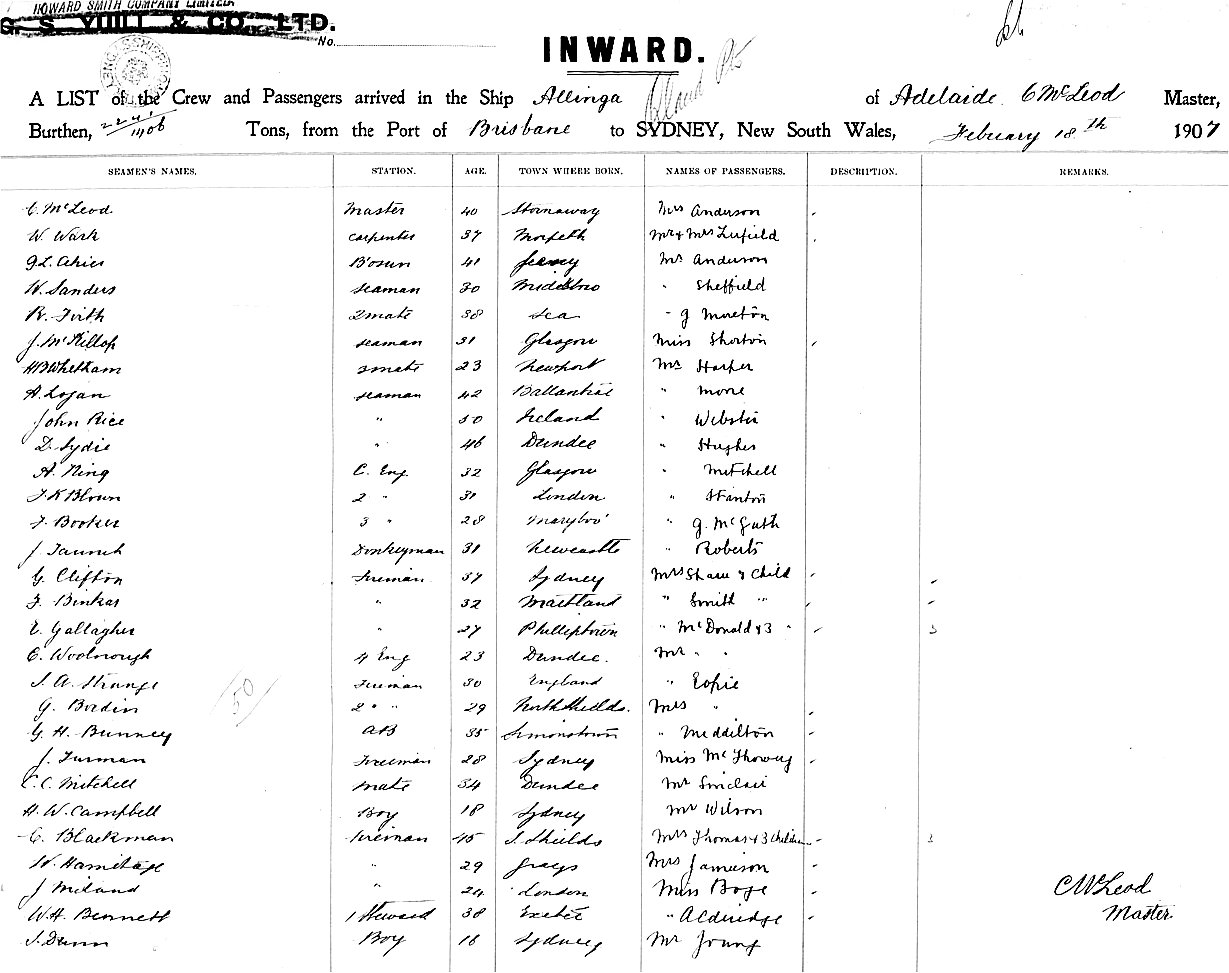 HOWARD SMITH COMPANY LIMITED
G. S. YUILL & CO., LTD.
No.
INWARD.
A LIST of the Crew and Passengers arrived in the Ship Allinga of Adelaide C McLeod Master,
Burthen, 2241/1406 Tons, from the Port of Brisbane to SYDNEY, New South Wales, February 18th 1907
SEAMEN'S NAMES. STATION. AGE. TOWN WHERE BORN. NAMES OF PASSENGERS. DESCRIPTION. REMARKS.
C. McLeod Master 40 Stornaway Mrs Anderson
W. Wark Carpenter 37 Morpeth Mr & Mrs
B'osun 41 Jersey Mr Anderson
W. Sanders Seaman 30 Middlbro " Sheffield
R. Firth 2mate 38 Sea " G Moreton
J. McKillop Seaman 31 Glasgow Miss Shorton
H B Whelham 3mate 23 Newport Mr Harper
A. Logan Seaman 42 Ballantrae "
John Rice " 50 Ireland " Webster
D. Lydie " 46 Dundee " Hughes
A. Ning C. Eng 32 Glasgow " Mitchell
2 " 31 London " Stanton
J. Booker 3 " 28 Marybro' " G. McGath
J Donkeyman 31 Newcastle " Roberts
G. Clifton Fireman 37 Sydney Mrs Shaw & Child
F. Binkas " 32 Maitland " Smith "
E. Gallagher " 27 Philliptown " McDonald & 3 " 3
C. Woolnough 4 Eng 23 Dundee. Mr " "
S. A. Strange Fireman 30 England " Eopie
G. Bordin 2 " " 29 North Shields. Mrs "
G. H. Bunney AB 35 Simonstown " Meddilton
J. Furman Fireman 28 Sydney Miss
C. C. Mitchell Mate 34 Dundee Mr Sinclair
H. W. Campbell Boy 18 Sydney Mr Wilson
C. Blackman Fireman 45 S. Shields Mrs Thomas & 3 Children 3
W. Hamitage " 29 Grays Mrs Jamieson
J Miland " 24 London Miss Boge
C McLeod
W. H. Bennett 1 Steward 38 Exeter " Aldridge
Master
S. Dunn Boy 16 Sydney Mr Young
50